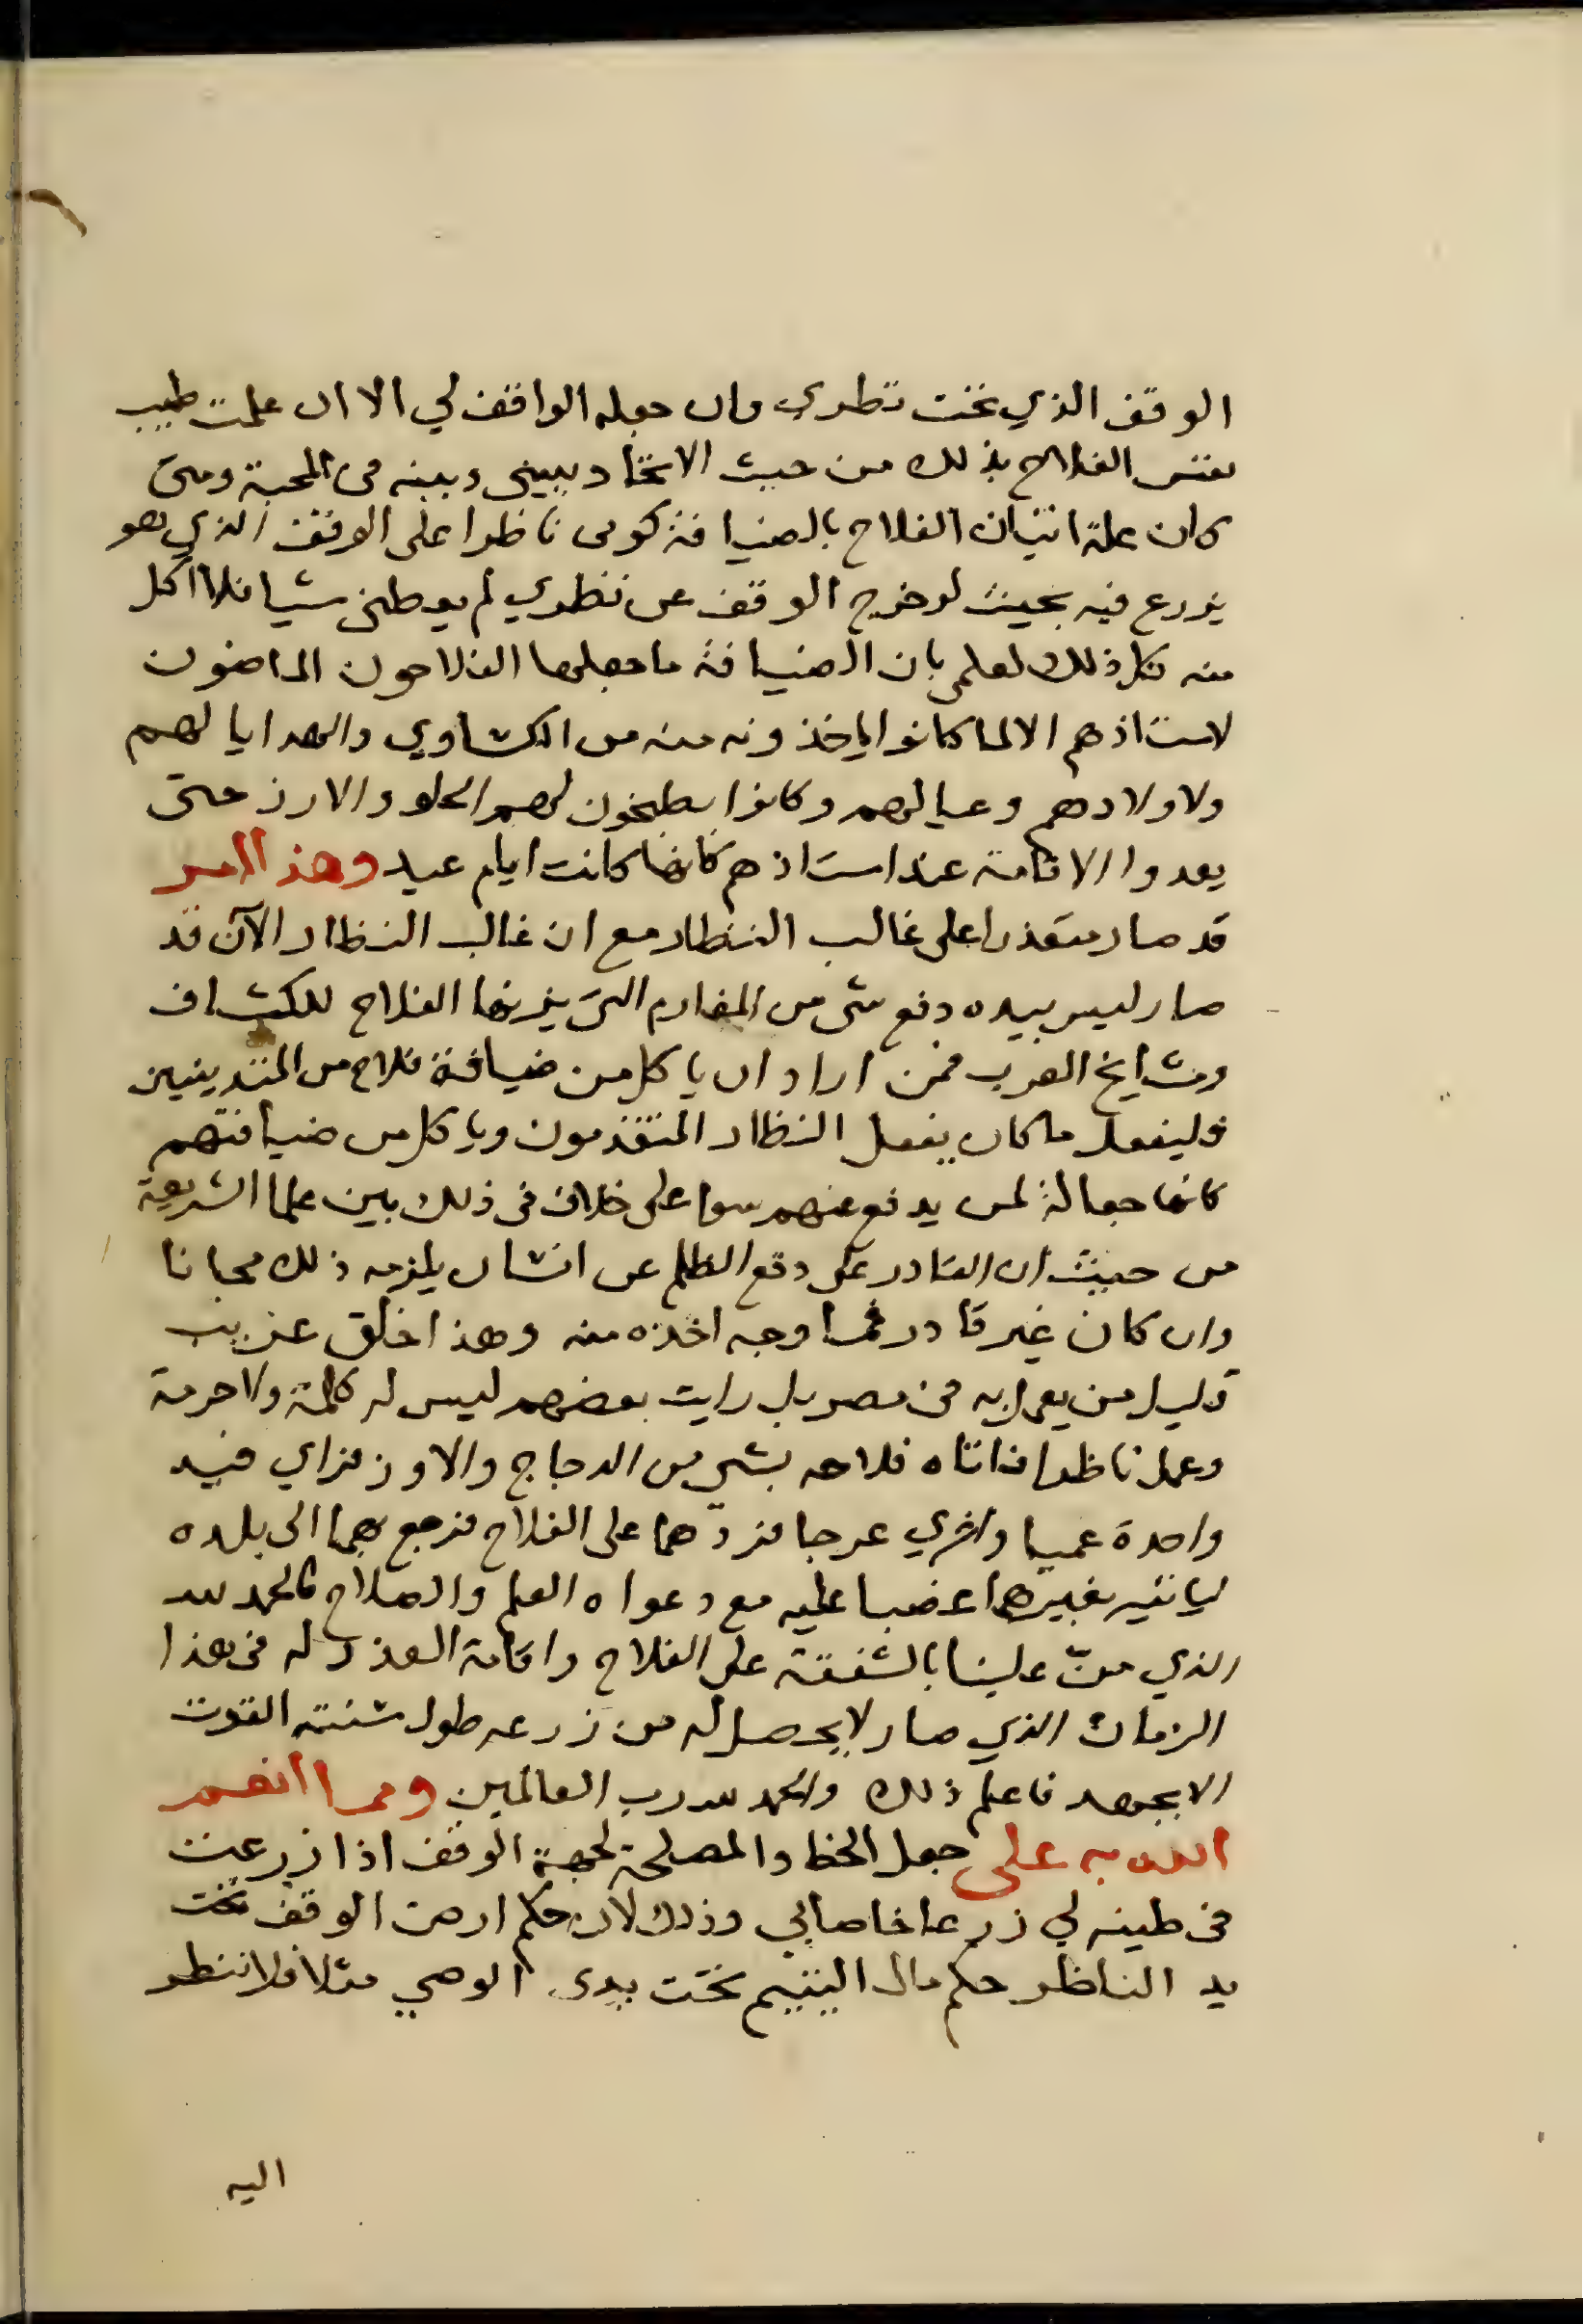 الوقف الذي تحت نظري وان جعله الواقف لي الا ان علمت طيب
نفس الفلاح بذلك من حيث الاتحاد بيني وبينه في المحبة ومتى
كان علة اتيان الفلاح بالضيافة كوني ناظرا على الوقف الذي هو
يزرع فيه بحيث لو خرج الوقف عن نظري لم يعطني شيا فلا اكل
منه كل ذلك لعلمي بان الضيافة ما جعلها الفلاحون الماضون
لاستاذهم الا لما كانوا ياخذونه منه من الكشاوي والهدايا لهم
ولاولادهم وعيالهم وكانوا يطبخون لهم الحلو والارز حتى
يعدوا الاقامة عند استاذهم كانها كانت ايام عيد وهذا الامر
قد صار متعذرا على غالب النظار مع ان غالب النظار الآن قد
صار ليس بيده دفع شي من المغارم التي يغرمها الفلاح للكشاف
ومشايخ العرب فمن اراد ان ياكل من ضيافة فلاح من المتدينين
فليفعل ما كان يفعل النظار المتقدمون وياكل من ضيافتهم
كانها جعالة لمن يدفع عنهم سوا على خلاف في ذلك بين علما الشريعة
من حيث ان القادر على دفع الظلم عن انسان يلزمه ذلك مجانا
وان كان غير قادر فما وجه اخذه منه وهذا خلق غريب
قليل من يعمل به في مصر بل رايت بعضهم ليس له كلمة ولا حرمة
وعمل ناظرا فاتاه فلاحه بشي من الدجاج والاوز فراي فيه
واحدة عميا واخري عرجا فردّهما على الفلاح فرجع بهما الى بلده
لياتيه بغيرهما غضبا عليه مع دعواه العلم والصلاح فالحمد لله
الذي منّ علينا بالشفقة على الفلاح واقامة العذر له في هذا
الزمان الذي صار لا يحصل له من زرعه طول سنته القوت
الا بجهد فاعلم ذلك والحمد لله رب العالمين ومما انعم
الله به على جعل الحظ والمصلحة لجهة الوقف اذا زرعت
في طينه لي زرعا خاصا بي وذلك لان حكم ارض الوقف تحت
يد الناظر حكم مال اليتيم تحت يدى الوصي مثلا فلا ننظر
اليه